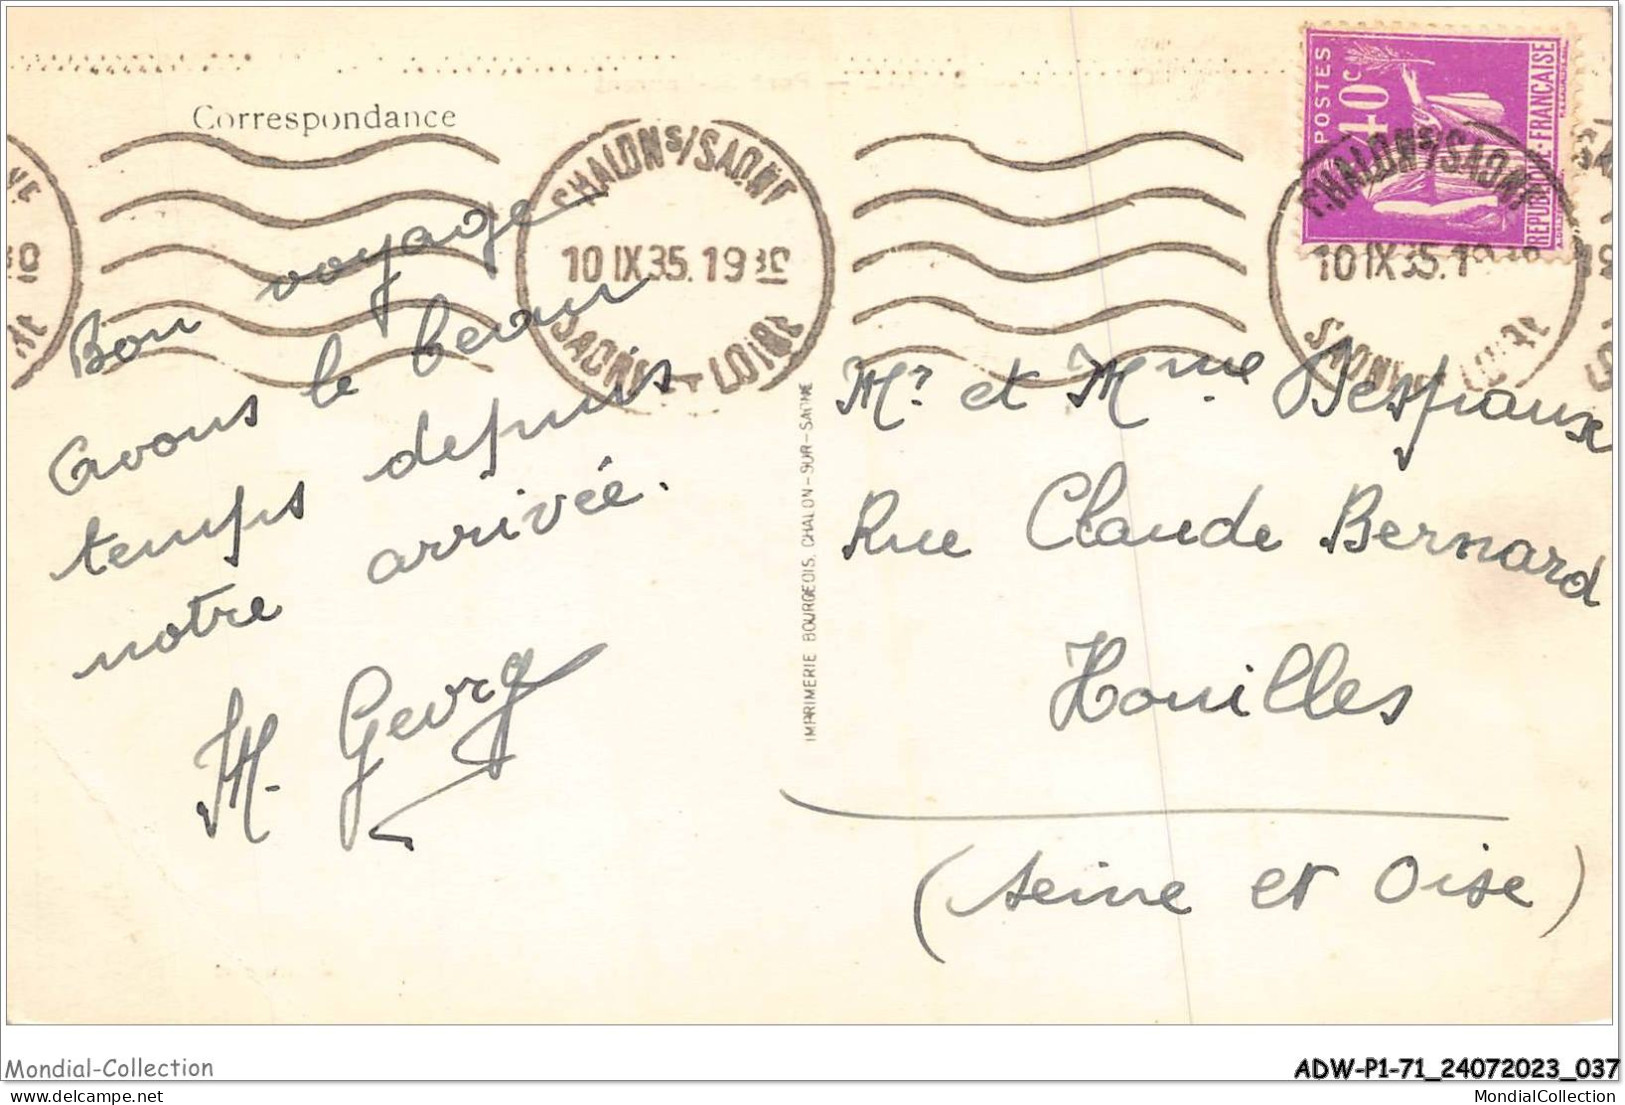 Correspondance
Bon voyage
avons le beau
temps depuis
notre arrivée.
M. Georg
CHALON S/SAONE
10 IX 35. 19 30
SAONE ET LOIRE
CHALON S/SAONE
10 IX 35. 1
SAONE ET LOIRE
POSTES
40c
REPUBLIQUE-FRANCAISE
IMPRIMERIE BOURGEOIS, CHALON-SUR-SAONE
Mr et Mme Desfraux
Rue Claude Bernard
Houilles
(Seine et Oise)
Mondial-Collection
ADW-P1-71_24072023_037
delcampe.net
MondialCollection